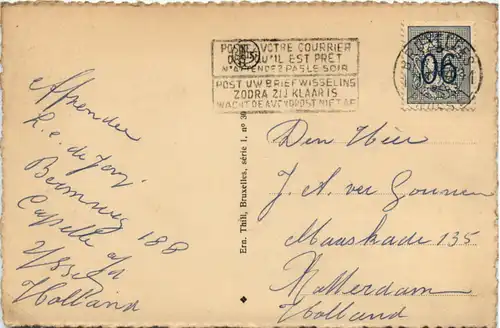 POSTEZ VOTRE COURRIER
DES QU'IL EST PRÊT
N'ATTENDEZ PAS LE SOIR
POST UW BRIEFWISSELING
ZODRA ZIJ KLAAR IS
WACHT DE AVONDPOST NIET AF
BRUXELLES
90
Afzender
188
Capelle a/d
IJssel
Holland
Ern. Thill, Bruxelles, série 1, n° 30
Den Heer
J. A. ver
Maaskade 135
Rotterdam
Holland